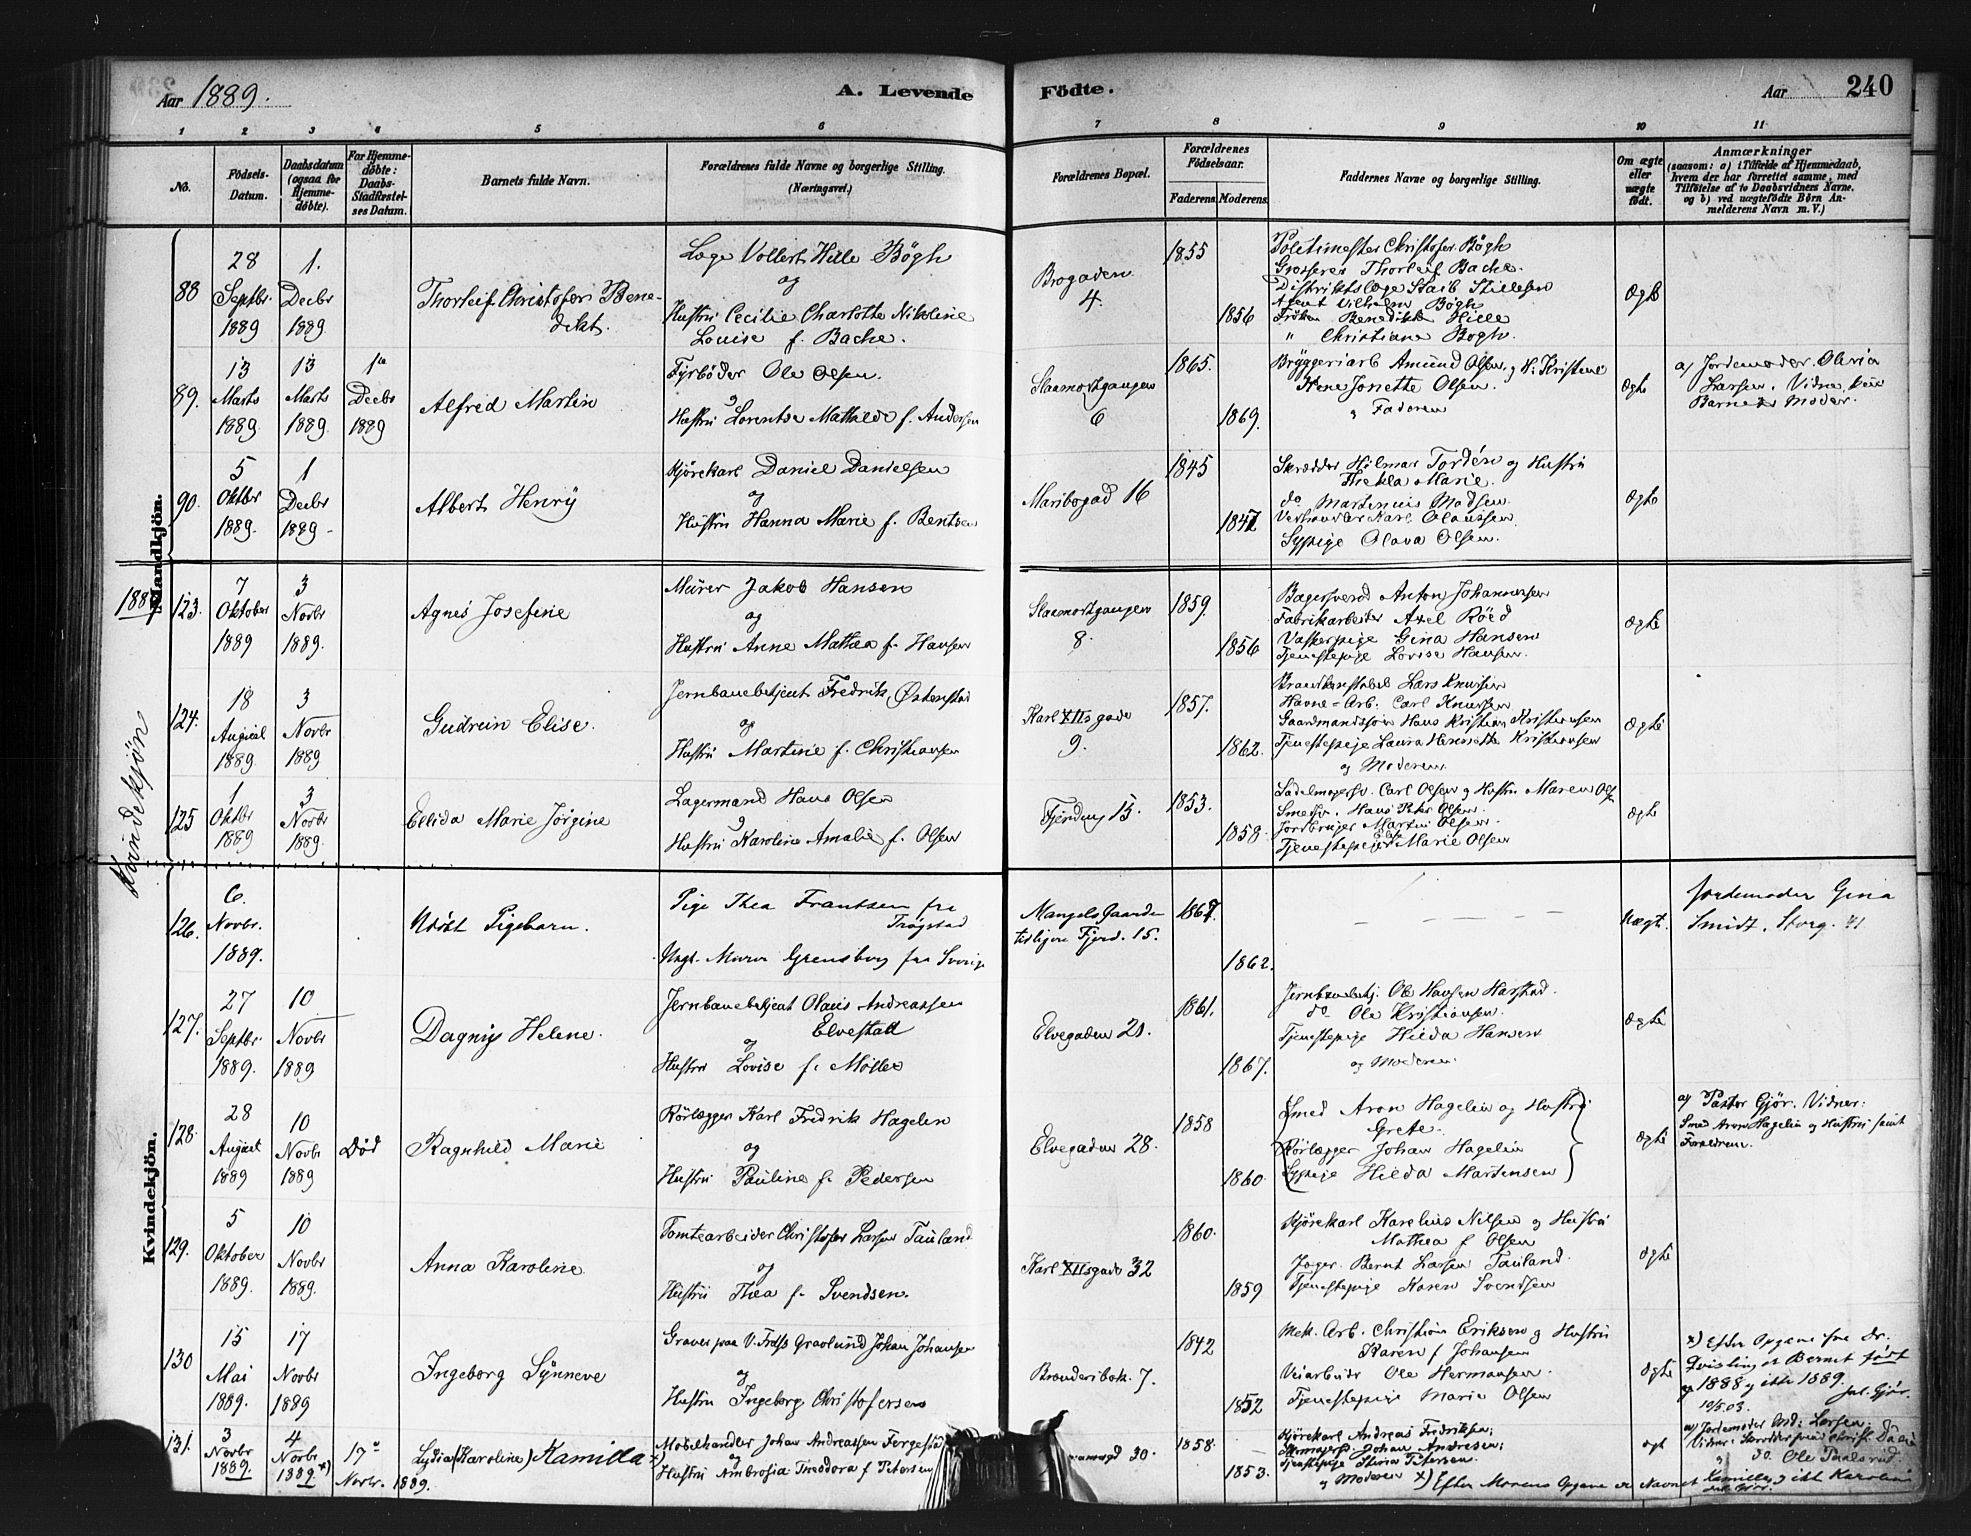 Aar 1889.
A. Levende
Fødte.
Aar
240
1 2 3 4 5 6 7 8 9 10 11
No.
Fødsels-Datum.
Daabsdatum (ogsaa for Hjemme-døbte).
For Hjemme-døbte: Daabs-Stadfæstel-ses Datum.
Barnets fulde Navn.
Forældrenes fulde Navne og borgerlige Stilling. (Næringsvei.)
Forældrenes Bopæl.
Forældrenes Fødselsaar.
Faderens. Moderens.
Faddernes Navne og borgerlige Stilling.
Om ægte eller uægte født.
Anmærkninger
(saasom: a) i Tilfælde af Hjemmedaab, hvem der har forrettet samme, med Tilføielse af to Daabsvidners Navne, og b) ved uægtefødte Børn An-melderens Navn m. V.)
Mandkjön.
88
28 Septbr. 1889
1. Decbr 1889
Thorleif Christofer Bene-
dikt.
Læge Vollert Hille Bøgh
og
Hustru Cecilie Charlotte Nikoline
Louise f. Bache.
Brogaden
4.
1855
1856
Politimester Christofer Bøgh
Grosserer Thorleif Bache.
Distriktslæge Stillesen
Agent Vilhelm Bøgh
Frøken Benedikte Hille
" Christiane Bøgh.
Ægte
89.
13 Marts 1889
13 Marts 1889.
1ste Decbr 1889
Alfred Martin
Fyrbøder Ole Olsen.
og
Hustru Lorentse Mathilde f. Andersen
6
1865.
1869.
Bryggeriarb Amund Olsen, og H. Kristine
Jonette Olsen.
og Faderen
Ægte
a) Jordemoder Olivia
Larsen. Vidne kun
Barnets Moder.
90.
5 Oktbr 1889.
1 Decbr 1889
Albert Henry
Kjørekarl Daniel Danielsen
og
Hustru Hanna Marie f. Bentsen
Maribogad 16
1845
1847
Skrædder Hilmar Tordén og Hustru
Thekla Marie.
do Martenius Madsen
Karl Olaussen
Sypige Olava Olsen.
Ægte
Kvindekjøn
123.
7 Oktober 1889
3 Novbr 1889.
Agnes Josefine
Murer Jakob Hansen
og
Hustru Anne Mathea f. Hansen
8.
1859.
1856
Bagersvend Anton Johannesen
Fabrikarbeider Axel Röed
Vaskerpige Gina Hansen
Tjenestepige Lovise Hansen.
Ægte
124.
18 August 1889.
3 Novbr 1889
Gudrun Elise.
Jernbanebetjent Fredrik Østenstad
og
Hustru Martine f. Christiansen
Karl XIIsgade
9.
1857.
1862.
Brandkonstabel Lars Knutsen
Havne-Arb. Carl Knutsen
Gaardmandssøn Hans Kristian Kristiansen
Tjenestepige Laura Henriette Kristiansen
og Moderen
Ægte
125
1 Oktbr 1889
3 Novbr 1889.
Ellida Marie Jörgine
Lagermand Hans Olsen
og
Hustru Karoline Amalie f. Olsen
Fjerding 15.
1853.
1858.
Sadelmagersv. Carl Olsen og Hustru Maren Olsen
Smedsv. Hans Peter Olsen.
Jordbruger Martin Olsen.
Tjenestepige Elise Marie Olsen
Ægte
126.
6. Novbr. 1889.
Udöbt Pigebarn.
Pige Thea Frantsen fra
Trøgstad
Ungk. Murer Grensborg fra Sverige
Mangels Gaarden
tidligere Fjerd. 15.
1867.
1862.
Uægt.
Jordemoder Gina
Smidt, Storg. 41
127.
27 Septbr. 1889.
10 Novbr 1889
Dagny Helene.
Jernbanebetjent Olaus Andreassen
Elvestad
og
Hustru Lovise f. Möller
Elvegaden 21.
1861.
1867.
Jernbanebetj. Ole Hansen Harstad.
do Ole Kristiansen.
Tjenestepige Hilda Hansen
og Moderen.
Ægte
Kvindekjön.
128.
28 August 1889
10 Novbr 1889
Død
Ragnhild Marie
Rørlægger Karl Fredrik Hagelin
og
Hustru Pauline f. Pedersen
Elvegaden 28.
1858
1860
Smed Aron Hagelin og Hustru
Grete.
Rørlægger Johan Hagelin
Sypige Hilda Martensen
Ægte
a) Pastor Gjør. Vidner:
Smed Aron Hagelin og Hustru samt
Forældrene.
129.
5 Oktober 1889.
10 Novbr 1889.
Anna Karoline
Tomtearbeider Christofer Larsen Tauland
og
Hustru Thea f. Svendsen.
Karl XIIsgade 32
1860.
1859
Kjørekarl Karelius Nilsen og Hustru
Mathea f Olsen
Bernt Larsen Tauland.
Tjenestepige Karen Svendsen
Ægte
130
15 Mai 1889.
17 Novbr 1889
Ingeborg Synneve
Graver paa V. Freds Gravlund Johan Johansen
og
Hustru Ingeborg Christofersen
7.
1842
1852
Mek. Arb. Christian Eriksen og Hustru
Karen f Johansen
Veiarbeider Ole Hermansen.
Tjenestepige Marie Olsen
Ægte
x) Efter Opgave fra Dr.
Quisling er Barnet født
1888 og ikke 1889.
10/5 03. Jul. Gjør.
131.
3 Novbr 1889.
4 Novbr 1889 x)
17de Novbr. 1889.
Lydia (Karoline) Kamilla x)
Møbelhandler Johan Andreassen Fergestad
og
Hustru Ambrosia Theodora f Petersen
30.
1858.
1853.
Kjørekarl Andreas Fredriksen;
Johan Andresen;
Tjenestepige Petersen.
og Moderen x) Efter Morens Opgave er Navnet Kamilla, og ikke Karoline
Ægte
a) Jordemoder And: Larsen.
Vidner:
og do. Ole Paulsrud